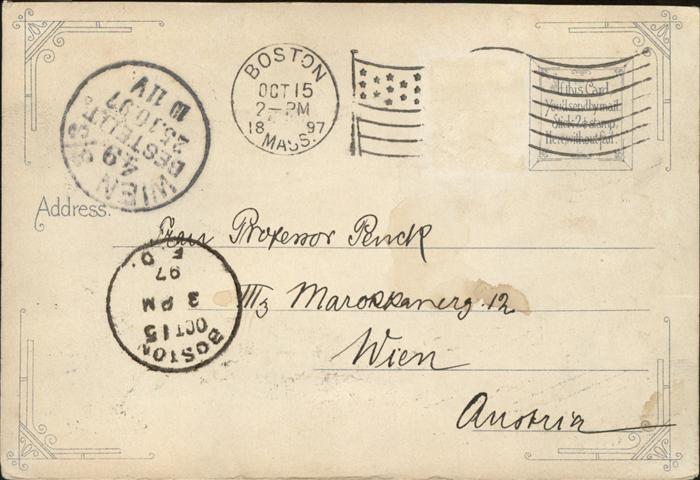 BOSTON
OCT 15
2-PM
18 97
MASS.
If this Card
You'd send by mail
Stick 2¢ stamp
here, without fail.
WIEN 3/3
49
BESTELLT
25.10.97
II V
Address.
Frau Professor Penck
III/3 Marokkanerg. 12
Wien
Austria
BOSTON
OCT 15
3 PM
97
F.D.